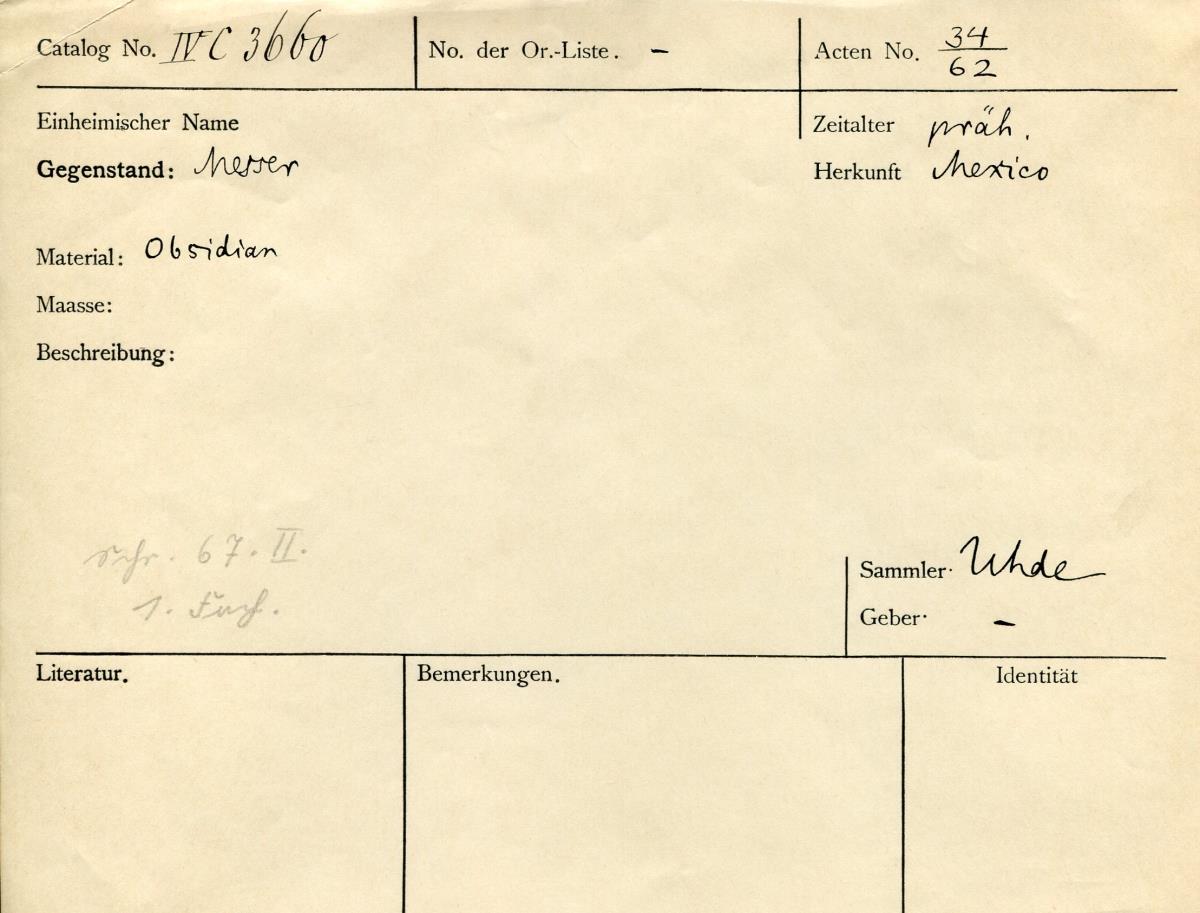 Catalog No. IV C 3660 No. der Or.-Liste. – Acten No. 34/62
Einheimischer Name
Zeitalter präh.
Gegenstand: Messer
Herkunft Mexico
Material: Obsidian
Maasse:
Beschreibung:
Schr. 67. II.
1. Fach.
Sammler. Uhde
Geber. –
Literatur. Bemerkungen. Identität